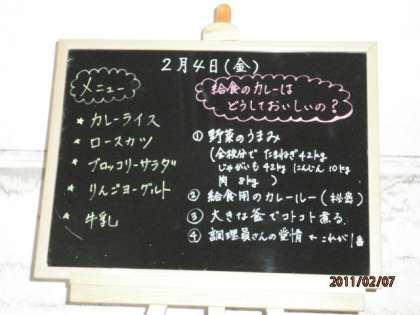 2月4日(金)
メニュー
★ カレーライス
★ ロースカツ
★ ブロッコリーサラダ
★ りんごヨーグルト
★ 牛乳
給食のカレーは
どうしておいしいの?
① 野菜のうまみ
(全校分で たまねぎ42kg
じゃがいも42kg にんじん10kg
肉 8kg )
② 給食用のカレールー(秘密)
③ 大きな釜でコトコト煮る
④ 調理員さんの愛情 ← これが1番
2011/02/07